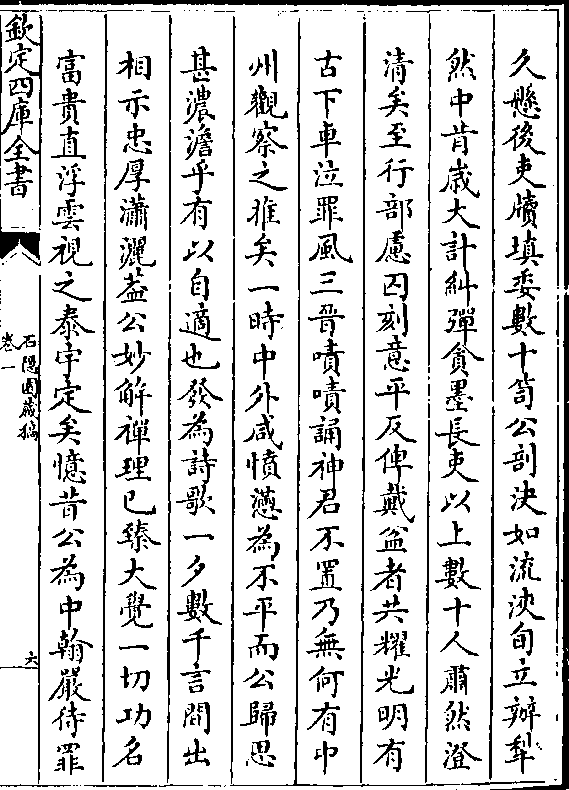 久懸後吏牘填委數十笥公剖決如流浹旬立辦犁
然中肯歳大計糾彈貪墨長吏以上數十人肅然澄
清矣至行部慮囚刻意平反俾戴盆者共耀光明有
古下車泣罪風三晉嘖嘖誦神君不置乃無何有中
州觀察之推矣一時中外咸憤懣為不平而公歸思
甚濃澹乎有以自適也發為詩歌一夕數千言間出
相示忠厚瀟灑葢公妙解禪理已臻大覺一切功名
富貴直浮雲視之泰宇定矣憶昔公為中翰嚴待罪
欽定四庫全書
石隱園藏稿
卷一
六